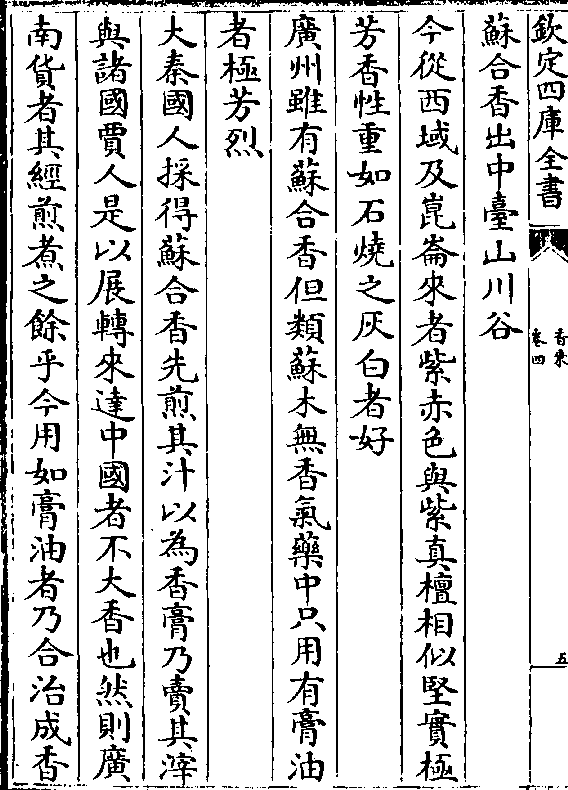 欽定四庫全書
香乘
卷四
五
蘇合香出中臺山川谷
今從西域及崑崙來者紫赤色與紫真檀相似堅實極
芳香性重如石燒之灰白者好
廣州雖有蘇合香但類蘇木無香氣藥中只用有膏油
者極芳烈
大秦國人採得蘇合香先煎其汁以為香膏乃賣其滓
與諸國賈人是以展轉來達中國者不大香也然則廣
南貨者其經煎煮之餘乎今用如膏油者乃合治成香